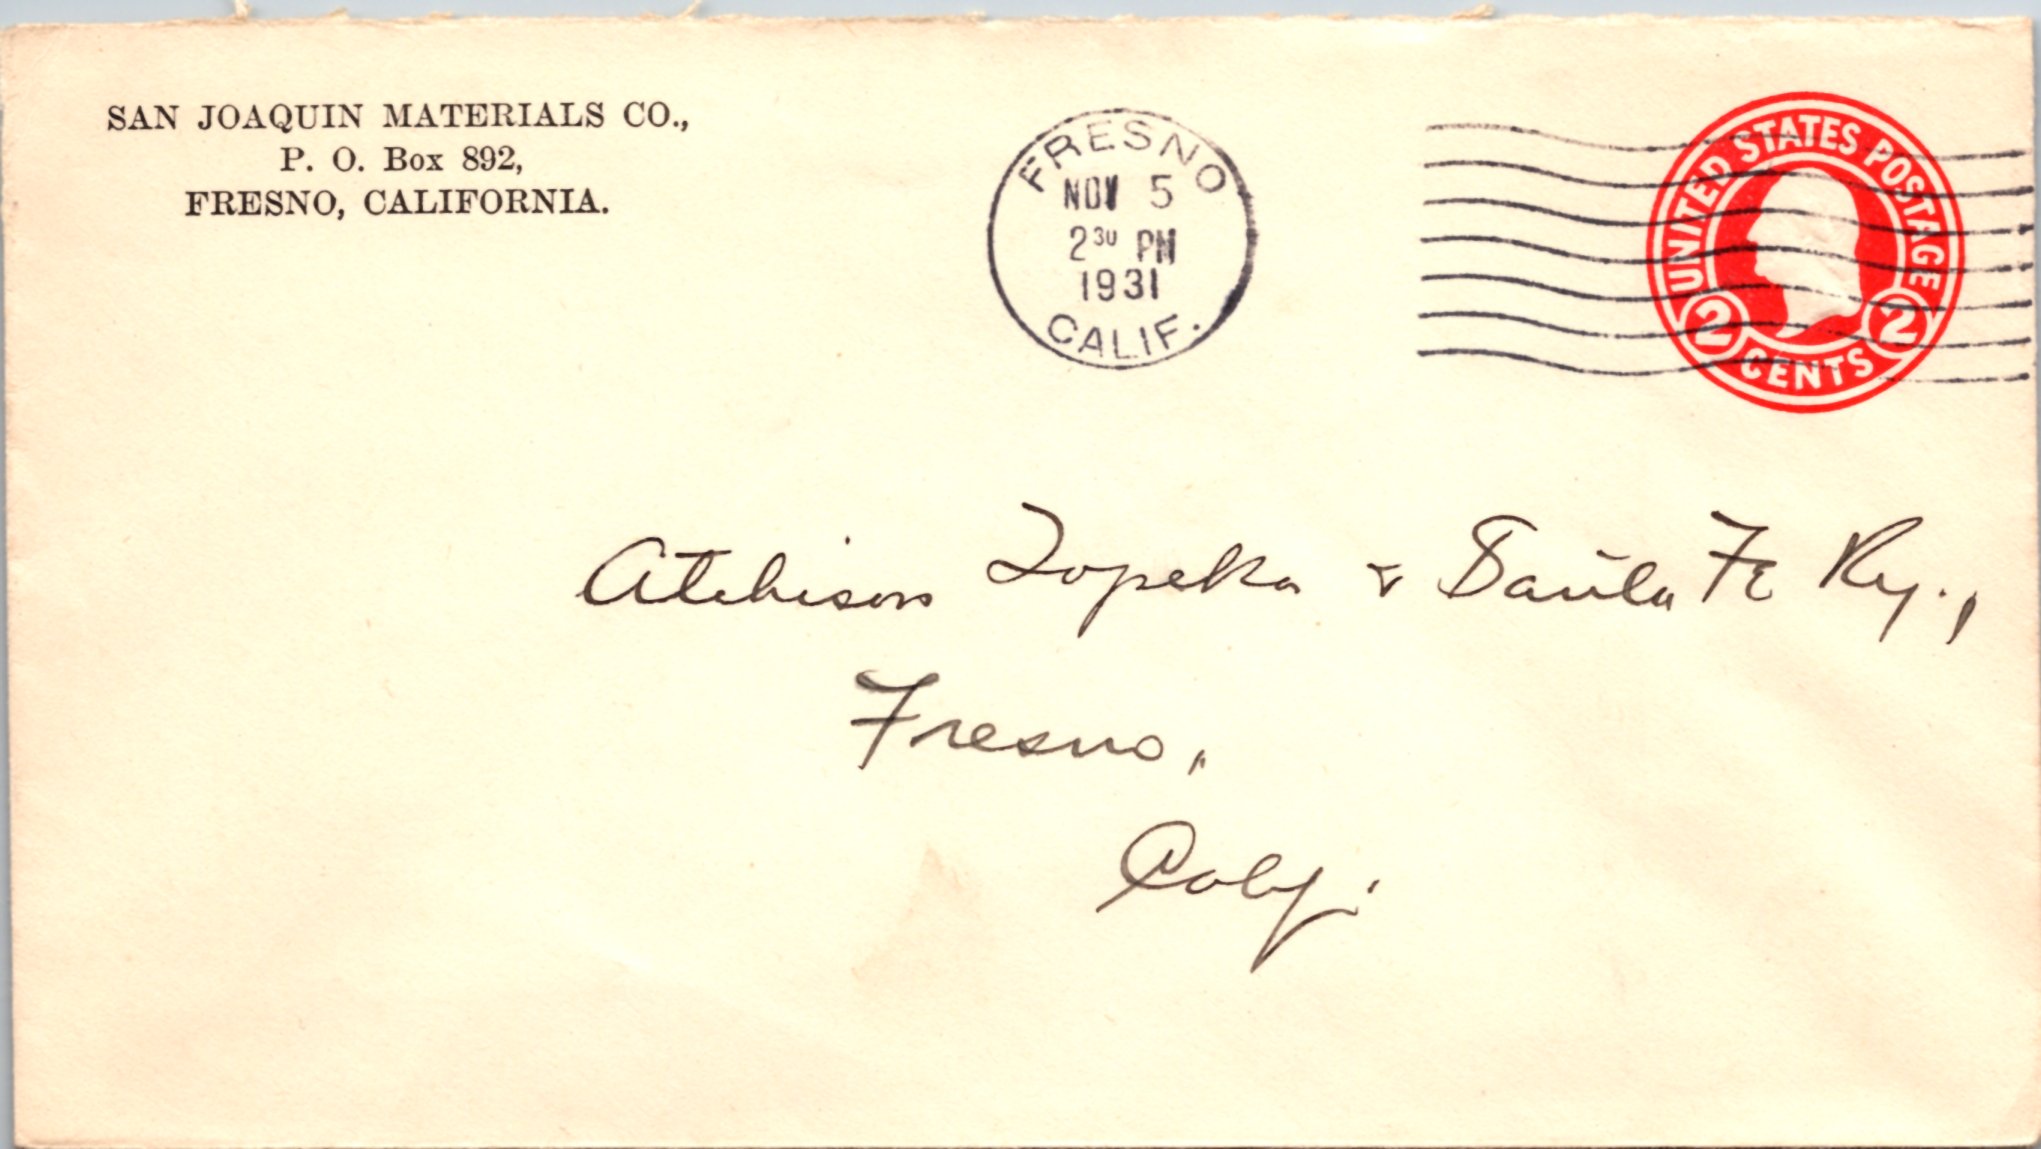 SAN JOAQUIN MATERIALS CO.,
P. O. Box 892,
FRESNO, CALIFORNIA.
FRESNO
NOV 5
2 30 PM
1931
CALIF.
UNITED STATES POSTAGE
2 CENTS 2
Atchison Topeka & Santa Fe Ry.,
Fresno,
Calif.